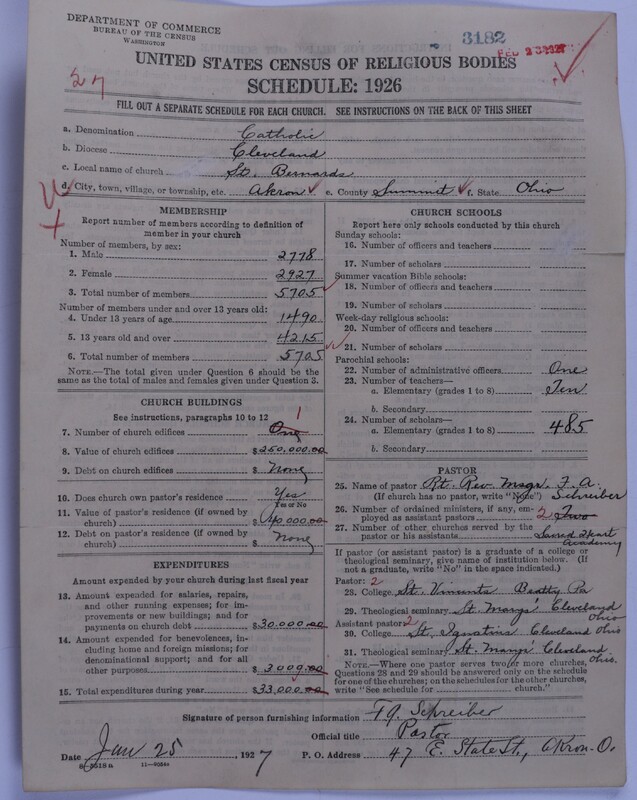 DEPARTMENT OF COMMERCE
BUREAU OF THE CENSUS
WASHINGTON
3182
27
UNITED STATES CENSUS OF RELIGIOUS BODIES
SCHEDULE: 1926
FILL OUT A SEPARATE SCHEDULE FOR EACH CHURCH. SEE INSTRUCTIONS ON THE BACK OF THIS SHEET
a. Denomination Catholic
b. Diocese Cleveland
c. Local name of church St. Bernards
d. City, town, village, or township, etc. Akron e. County Summit f. State Ohio
MEMBERSHIP
Report number of members according to definition of
member in your church
Number of members, by sex:
1. Male 2778
2. Female 2927
3. Total number of members 5705
Number of members under and over 13 years old:
4. Under 13 years of age 1490
5. 13 years old and over 4215
6. Total number of members 5705
NOTE.—The total given under Question 6 should be
the same as the total of males and females given under Question 3.
CHURCH BUILDINGS
See instructions, paragraphs 10 to 12
7. Number of church edifices One 1
8. Value of church edifices $250,000.00
9. Debt on church edifices $ None
10. Does church own pastor's residence? Yes
Yes or No
11. Value of pastor's residence (if owned by
church) $40,000.00
12. Debt on pastor's residence (if owned by
church) $ None
EXPENDITURES
Amount expended by your church during last fiscal year
13. Amount expended for salaries, repairs,
and other running expenses; for im-
provements or new buildings; and for
payments on church debt $30,000.00
14. Amount expended for benevolences, in-
cluding home and foreign missions; for
denominational support; and for all
other purposes $3,000.00
15. Total expenditures during year $33,000.00
CHURCH SCHOOLS
Report here only schools conducted by this church
Sunday schools:
16. Number of officers and teachers
17. Number of scholars
Summer vacation Bible schools:
18. Number of officers and teachers
19. Number of scholars
Week-day religious schools:
20. Number of officers and teachers
21. Number of scholars
Parochial schools:
22. Number of administrative officers One
23. Number of teachers—
a. Elementary (grades 1 to 8) Ten
b. Secondary
24. Number of scholars—
a. Elementary (grades 1 to 8) 485
b. Secondary
PASTOR
25. Name of pastor Rt. Rev. Msgr. F. A.
(If church has no pastor, write "None") Schreiber
26. Number of ordained ministers, if any, em-
ployed as assistant pastors 2 Two
27. Number of other churches served by the
pastor or his assistants Sacred Heart
Academy
If pastor (or assistant pastor) is a graduate of a college or
theological seminary, give name of institution below. (If
not a graduate, write "No" in the space indicated.)
Pastor: 2
28. College St. Vincents Beatty Pa
29. Theological seminary St. Marys' Cleveland
Ohio
Assistant pastor: 2
30. College St. Ignatius Cleveland Ohio
31. Theological seminary St. Marys' Cleveland
Ohio.
NOTE.—Where one pastor serves two or more churches,
Questions 28 and 29 should be answered only on the schedule
for one of the churches; on the schedules for the other churches,
write "See schedule for church."
Signature of person furnishing information F A. Schreiber
Official title Pastor
Date Jan 25, 1927 P. O. Address 47 E. State St., Akron. O.
8-5518a